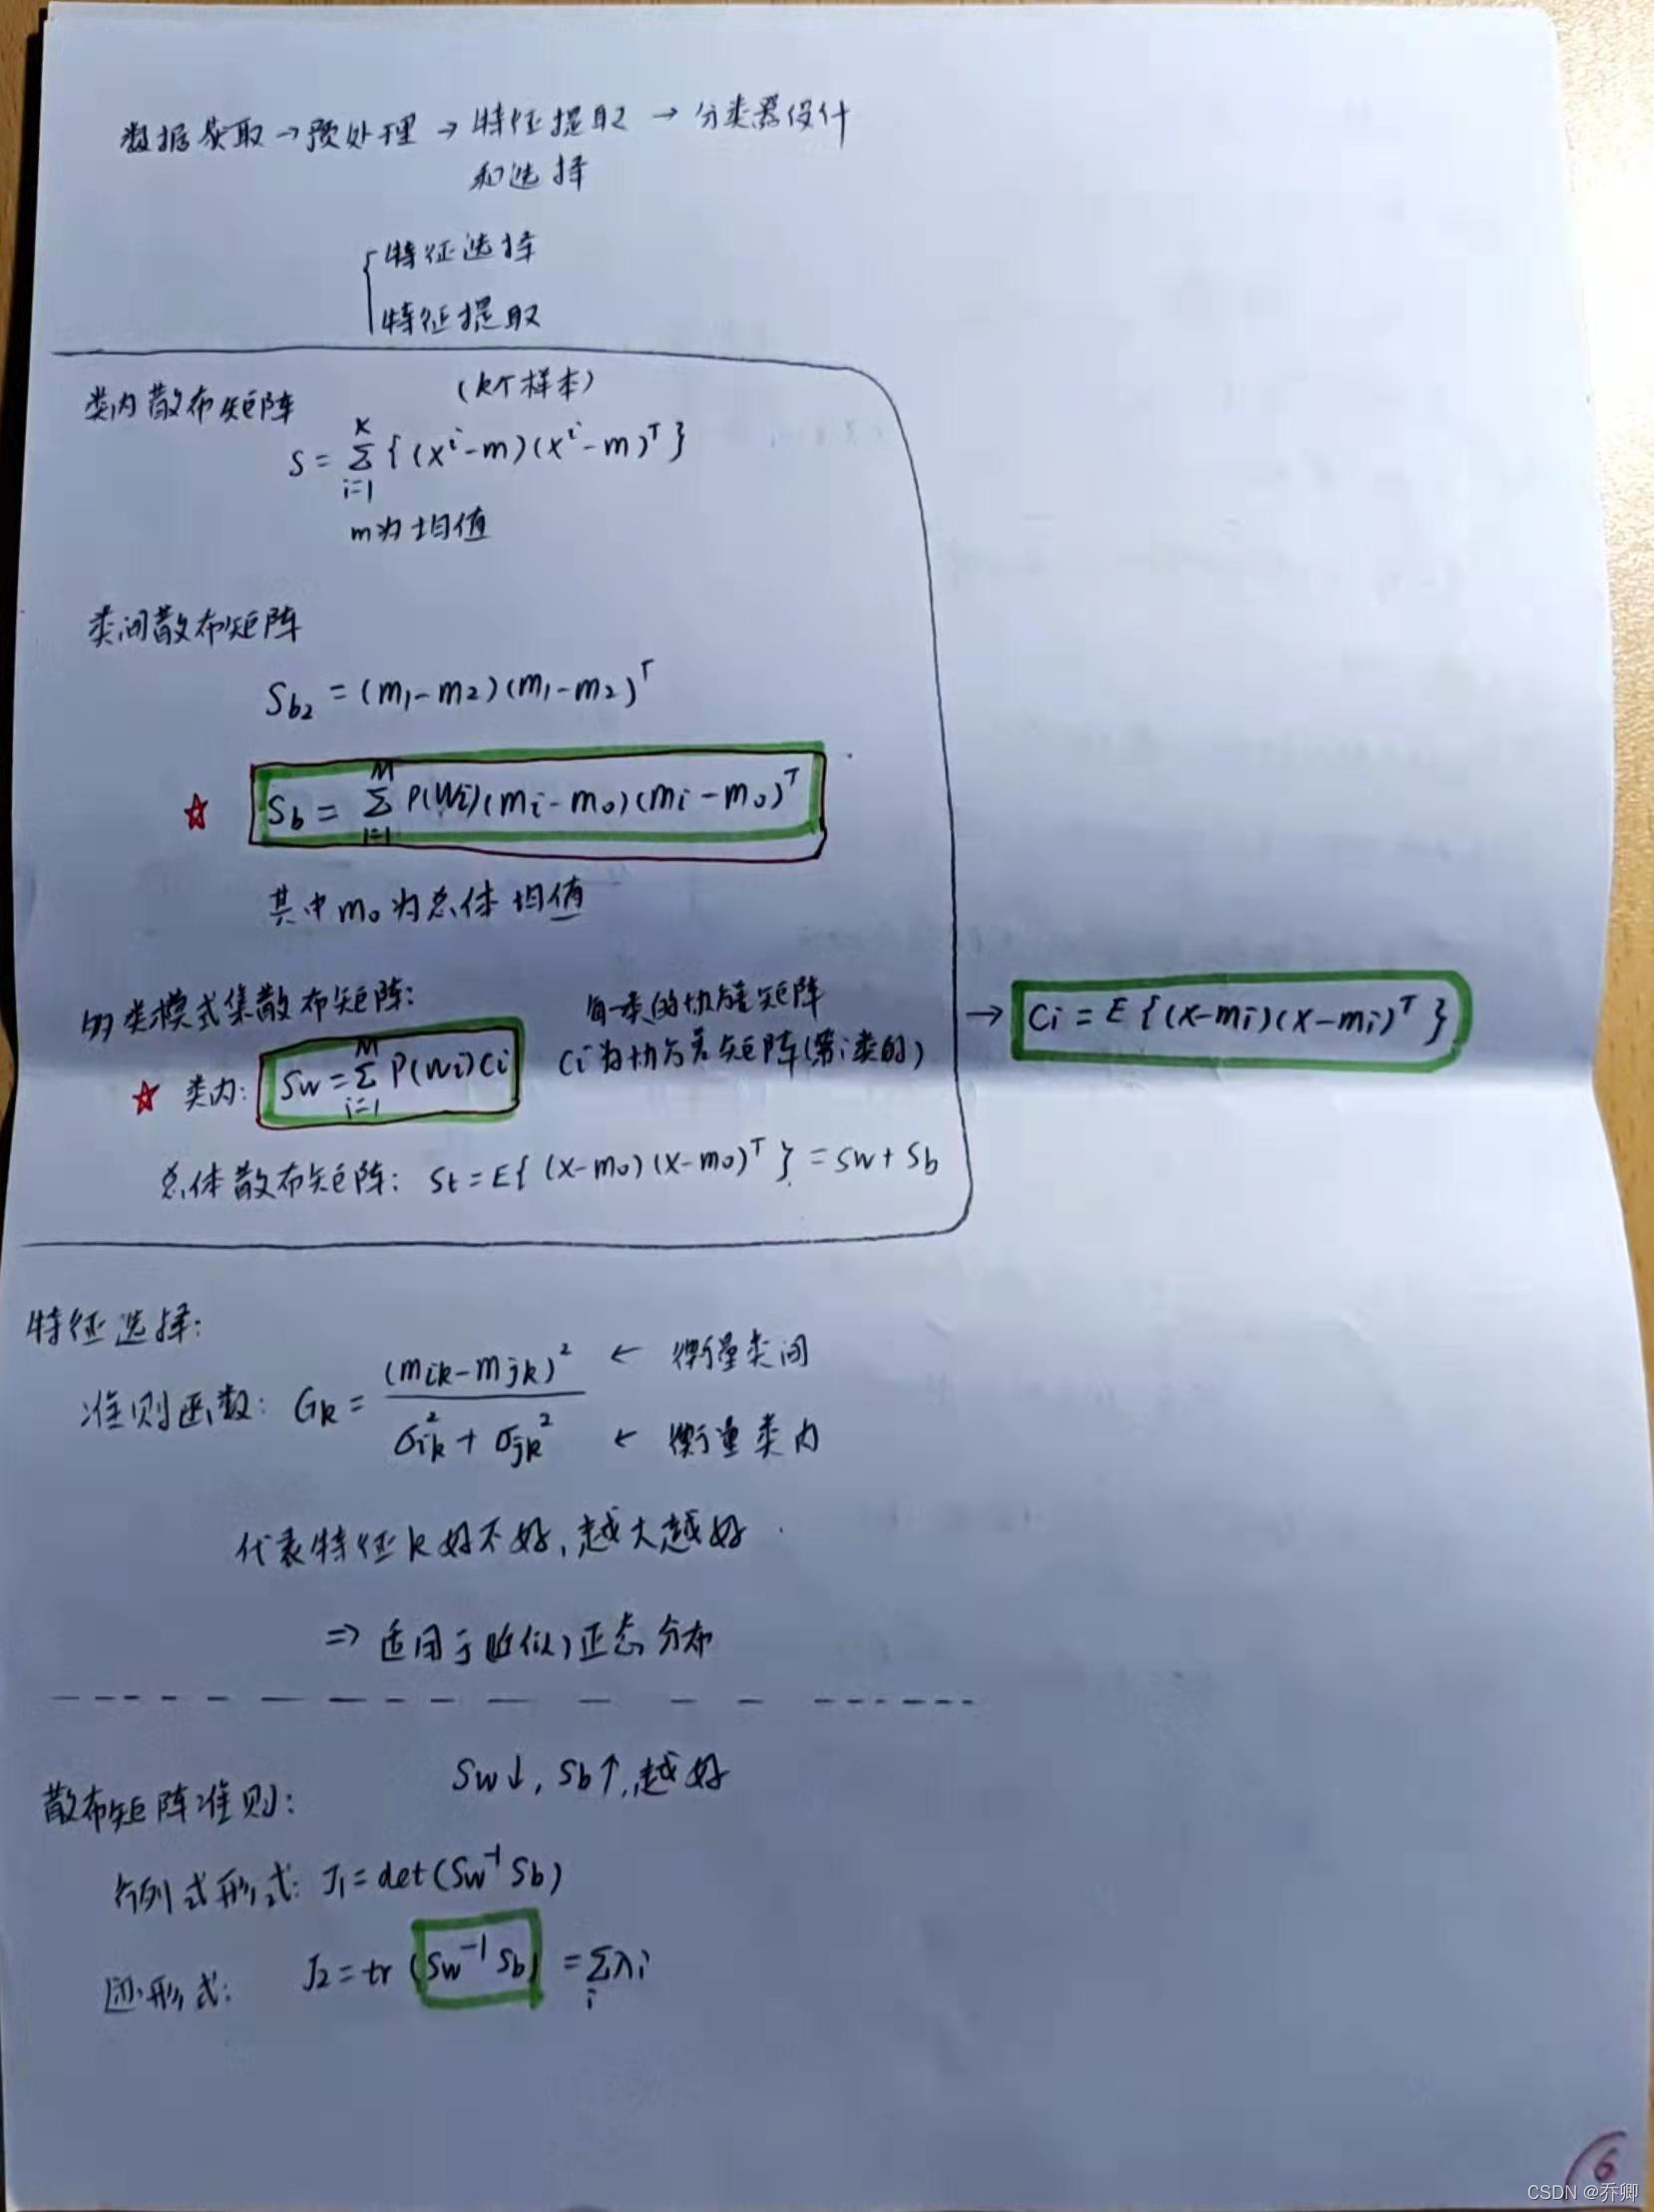 数据获取→预处理→特征提取→分类器设计
和选择
特征选择
特征提取
类内散布矩阵 (k个样本)
S = Σ_{i=1}^{K} {(x^i-m)(x^i-m)^T}
m为均值
类间散布矩阵
S_{b2} = (m_1-m_2)(m_1-m_2)^T
☆ S_b = Σ_{i=1}^{M} P(W_i)(m_i-m_0)(m_i-m_0)^T
其中m_0为总体均值
多类模式集散布矩阵: 每一类的协方差矩阵
☆ 类内: S_w = Σ_{i=1}^{M} P(W_i)C_i C_i为协方差矩阵(第i类的) → C_i = E{(x-m_i)(x-m_i)^T}
总体散布矩阵: S_t = E{(x-m_0)(x-m_0)^T} = S_w + S_b
特征选择:
准则函数: G_k = (m_{ik}-m_{jk})^2 ← 衡量类间
σ_{ik}^2 + σ_{jk}^2 ← 衡量类内
代表特征k好不好,越大越好.
⇒ 适用于(近似)正态分布
散布矩阵准则: S_w↓, S_b↑,越好
行列式形式: J_1 = det(S_w^{-1} S_b)
迹形式: J_2 = tr(S_w^{-1} S_b) = Σ_i λ_i
6
CSDN @乔卿